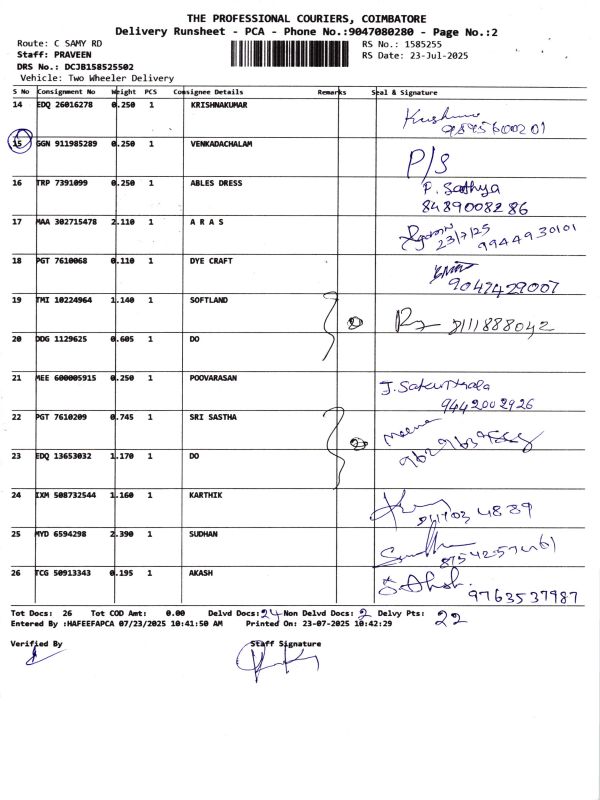 THE PROFESSIONAL COURIERS, COIMBATORE
Delivery Runsheet - PCA - Phone No.:9047080280 - Page No.:2
Route: C SAMY RD RS No.: 1585255
Staff: PRAVEEN RS Date: 23-Jul-2025
DRS No.: DCJB158525502
Vehicle: Two Wheeler Delivery
S No Consignment No Weight PCS Consignee Details Remarks Seal & Signature
14 EDQ 26016278 0.250 1 KRISHNAKUMAR
9895600201
15 GGN 911985289 0.250 1 VENKADACHALAM P/S
16 TRP 7391099 0.250 1 ABLES DRESS P. Sathya
8489008286
17 MAA 302715478 2.110 1 A R A S 23/7/25 9944930101
18 PGT 7610068 0.110 1 DYE CRAFT
9047429007
19 TMI 10224964 1.140 1 SOFTLAND 2 8111888042
20 DDG 1129625 0.605 1 DO
21 MEE 600005915 0.250 1 POOVARASAN J. Sakunthala
9442002926
22 PGT 7610209 0.745 1 SRI SASTHA 2 Meena
23 EDQ 13653032 1.170 1 DO
24 IXM 508732544 1.160 1 KARTHIK
25 MYD 6594298 2.390 1 SUDHAN
26 TCG 50913343 0.195 1 AKASH
9763537987
Tot Docs: 26 Tot COD Amt: 0.00 Delvd Docs: 24 Non Delvd Docs: 2 Delvy Pts: 22
Entered By :HAFEEFAPCA 07/23/2025 10:41:50 AM Printed On: 23-07-2025 10:42:29
Verified By Staff Signature